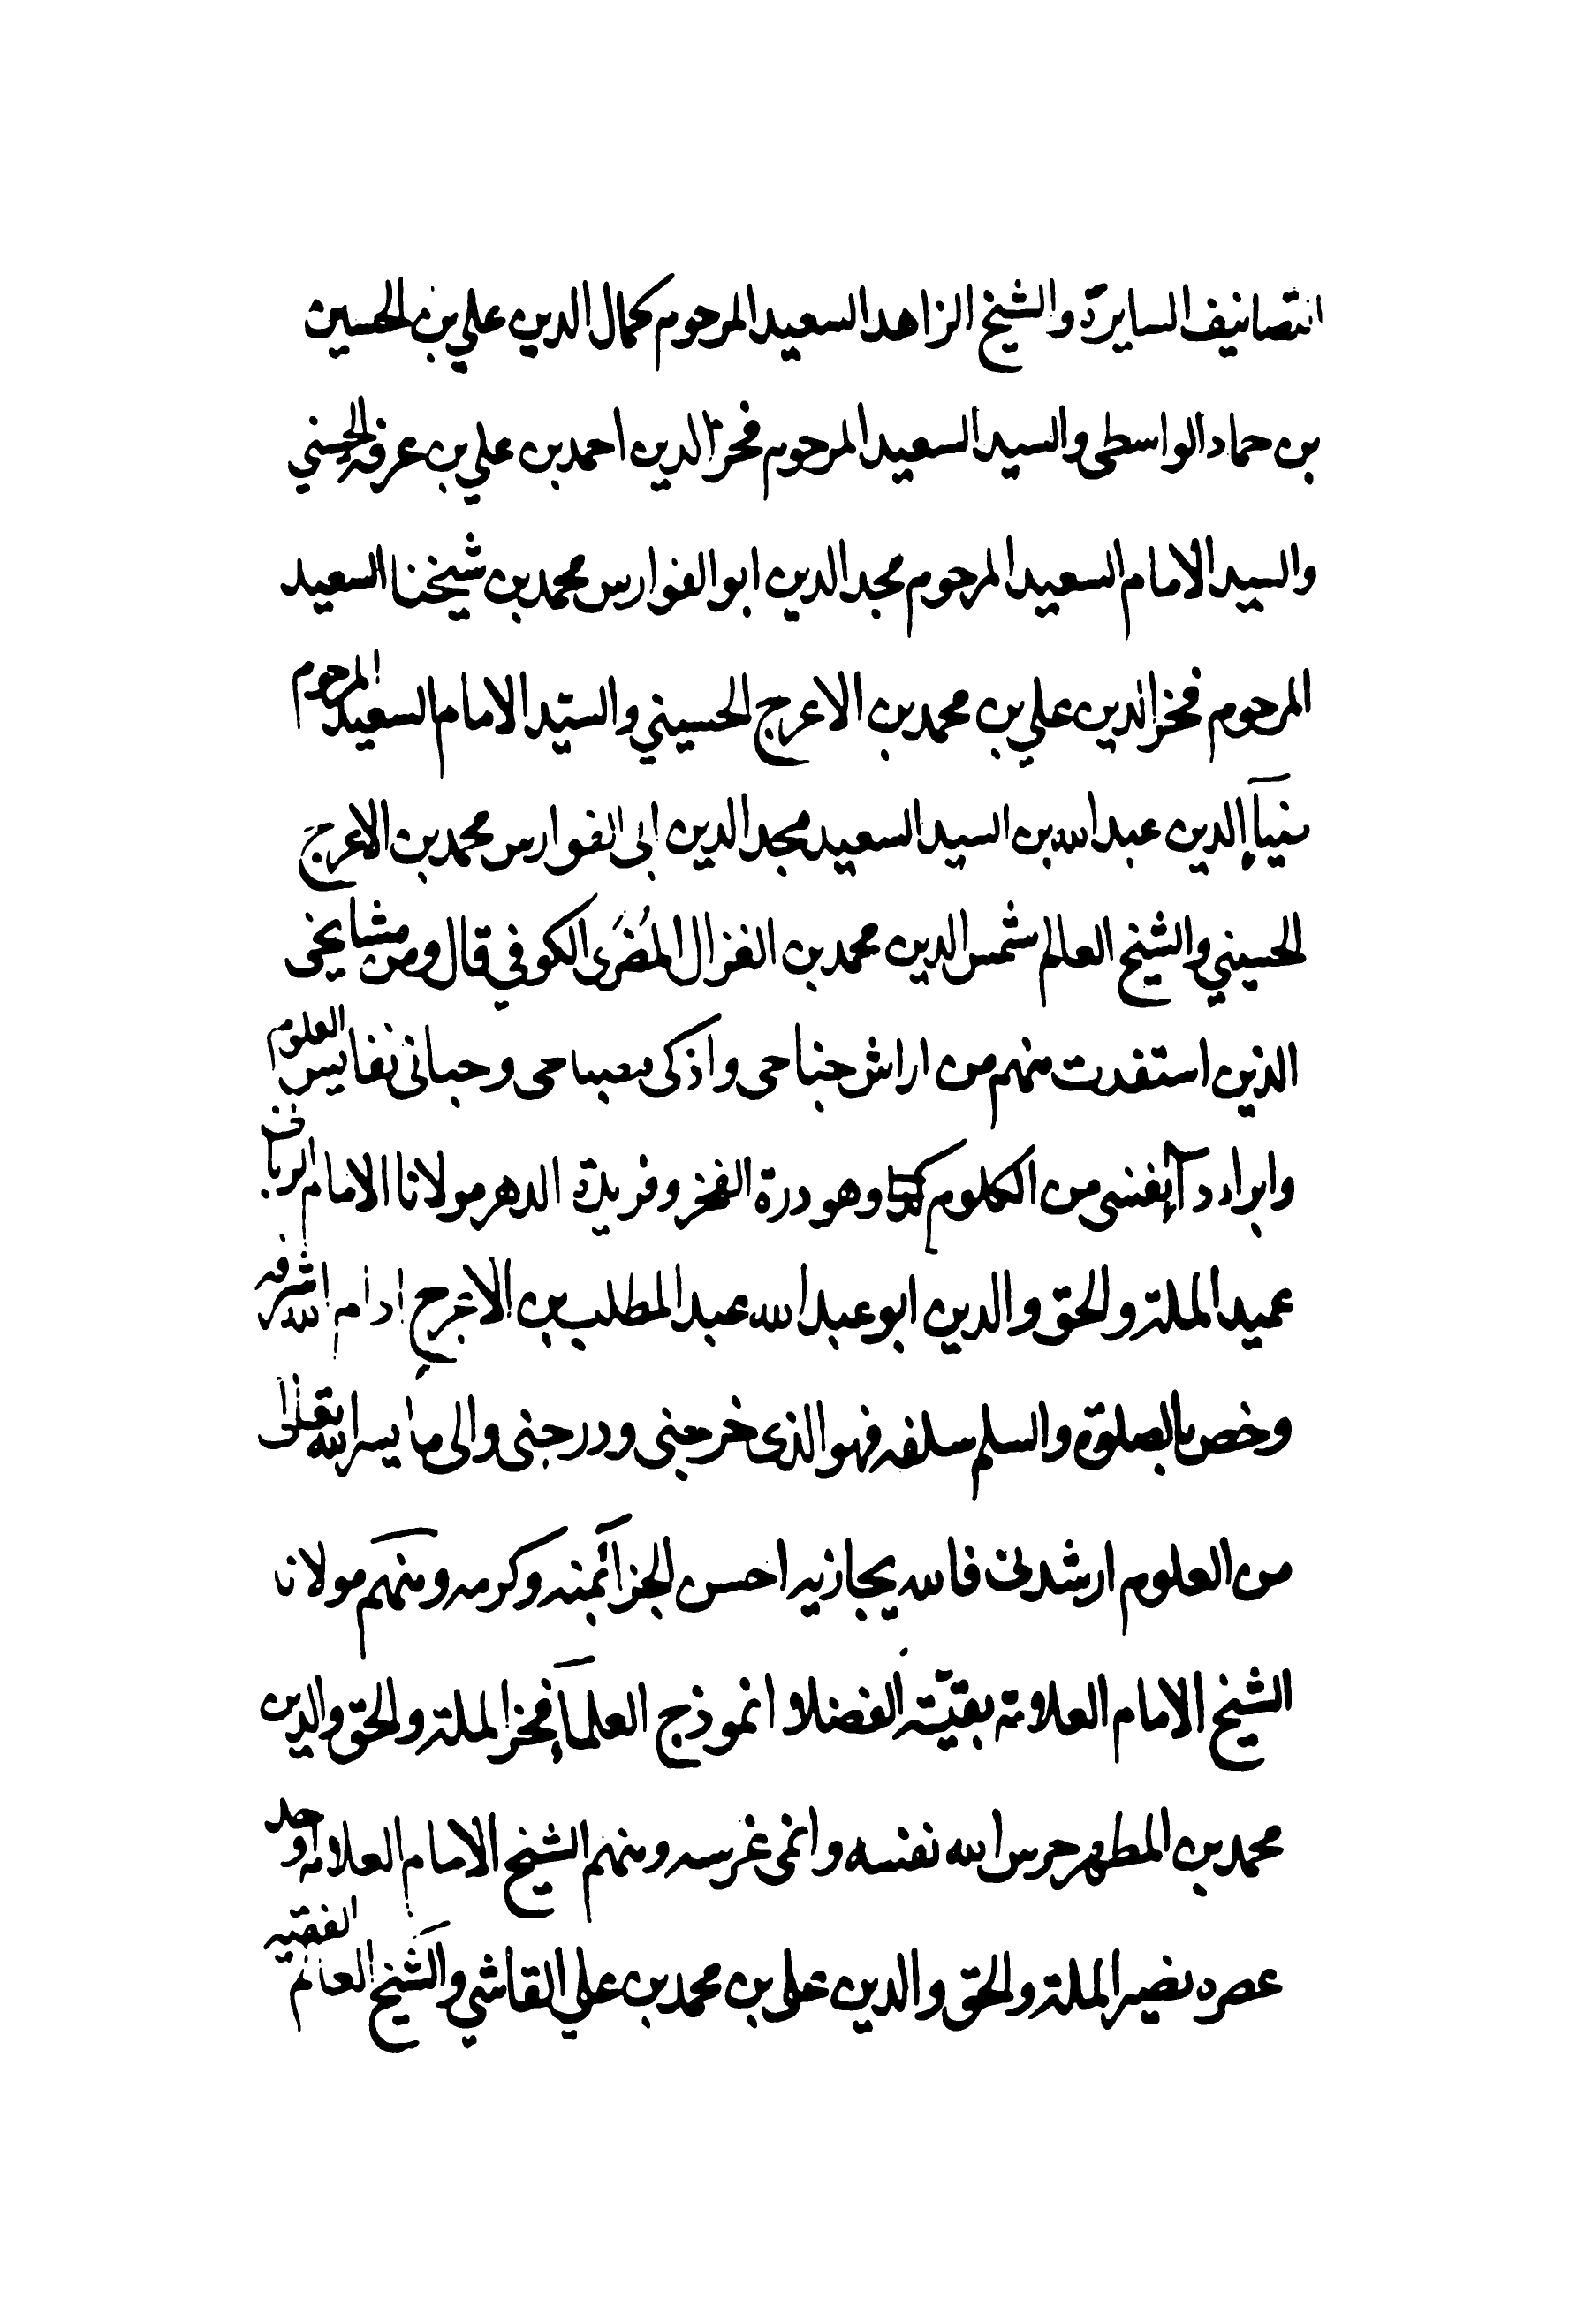 التصانيف السايرة والشيخ الزاهد السعيد المرحوم كمال الدين علي بن الحسين
بن حماد الواسطى والسيد السعيد المرحوم فخر الدين احمد بن علي بن عرفه الحسني
والسيد الامام السعيد المرحوم مجد الدين ابو الفوارس محمد بن شيخنا السعيد
المرحوم فخر الدين علي بن محمد بن الاعرج الحسيني والسيّد الامام السعيد المرحوم
ضيآء الدين عبد الله بن السيد السعيد مجد الدين ابى الفوارس محمد بن الاعرج
الحسيني والشيخ العالم شمس الدين محمد بن الغزال المضرى الكوفي قال ومن مشايخى
الذين استفدت منهم من اراش جناحى واذكى مصباحى وحبانى نفايس العلوم
وابراد آ نفسى من الكلوم وهو درة الفخر وفريدة الدهر مولانا الامام الربانى
عميد الملة والحق والدين ابو عبد الله عبد المطلب بن الاعرج ادام الله شرفه
وخص بالصلوة والسلم سلفه فهو الذى خرجنى ودرجنى والى ما يسر الله تعالى
من العلوم ارشدنى فالله يجازيه احسن الجزآ بمنه وكرمه ومنهم مولانا
الشيخ الامام العلامة بقيّة الفضلا وانموذج العلمآ فخر الملة والحق والدين
محمد بن المطهر حرس الله نفسه وانمى غرسه ومنهم الشيخ الامام العلامه اوحد
عصره نصير الملة والحق والدين على بن محمد بن علي القاشي والشيخ العالم الفقيه